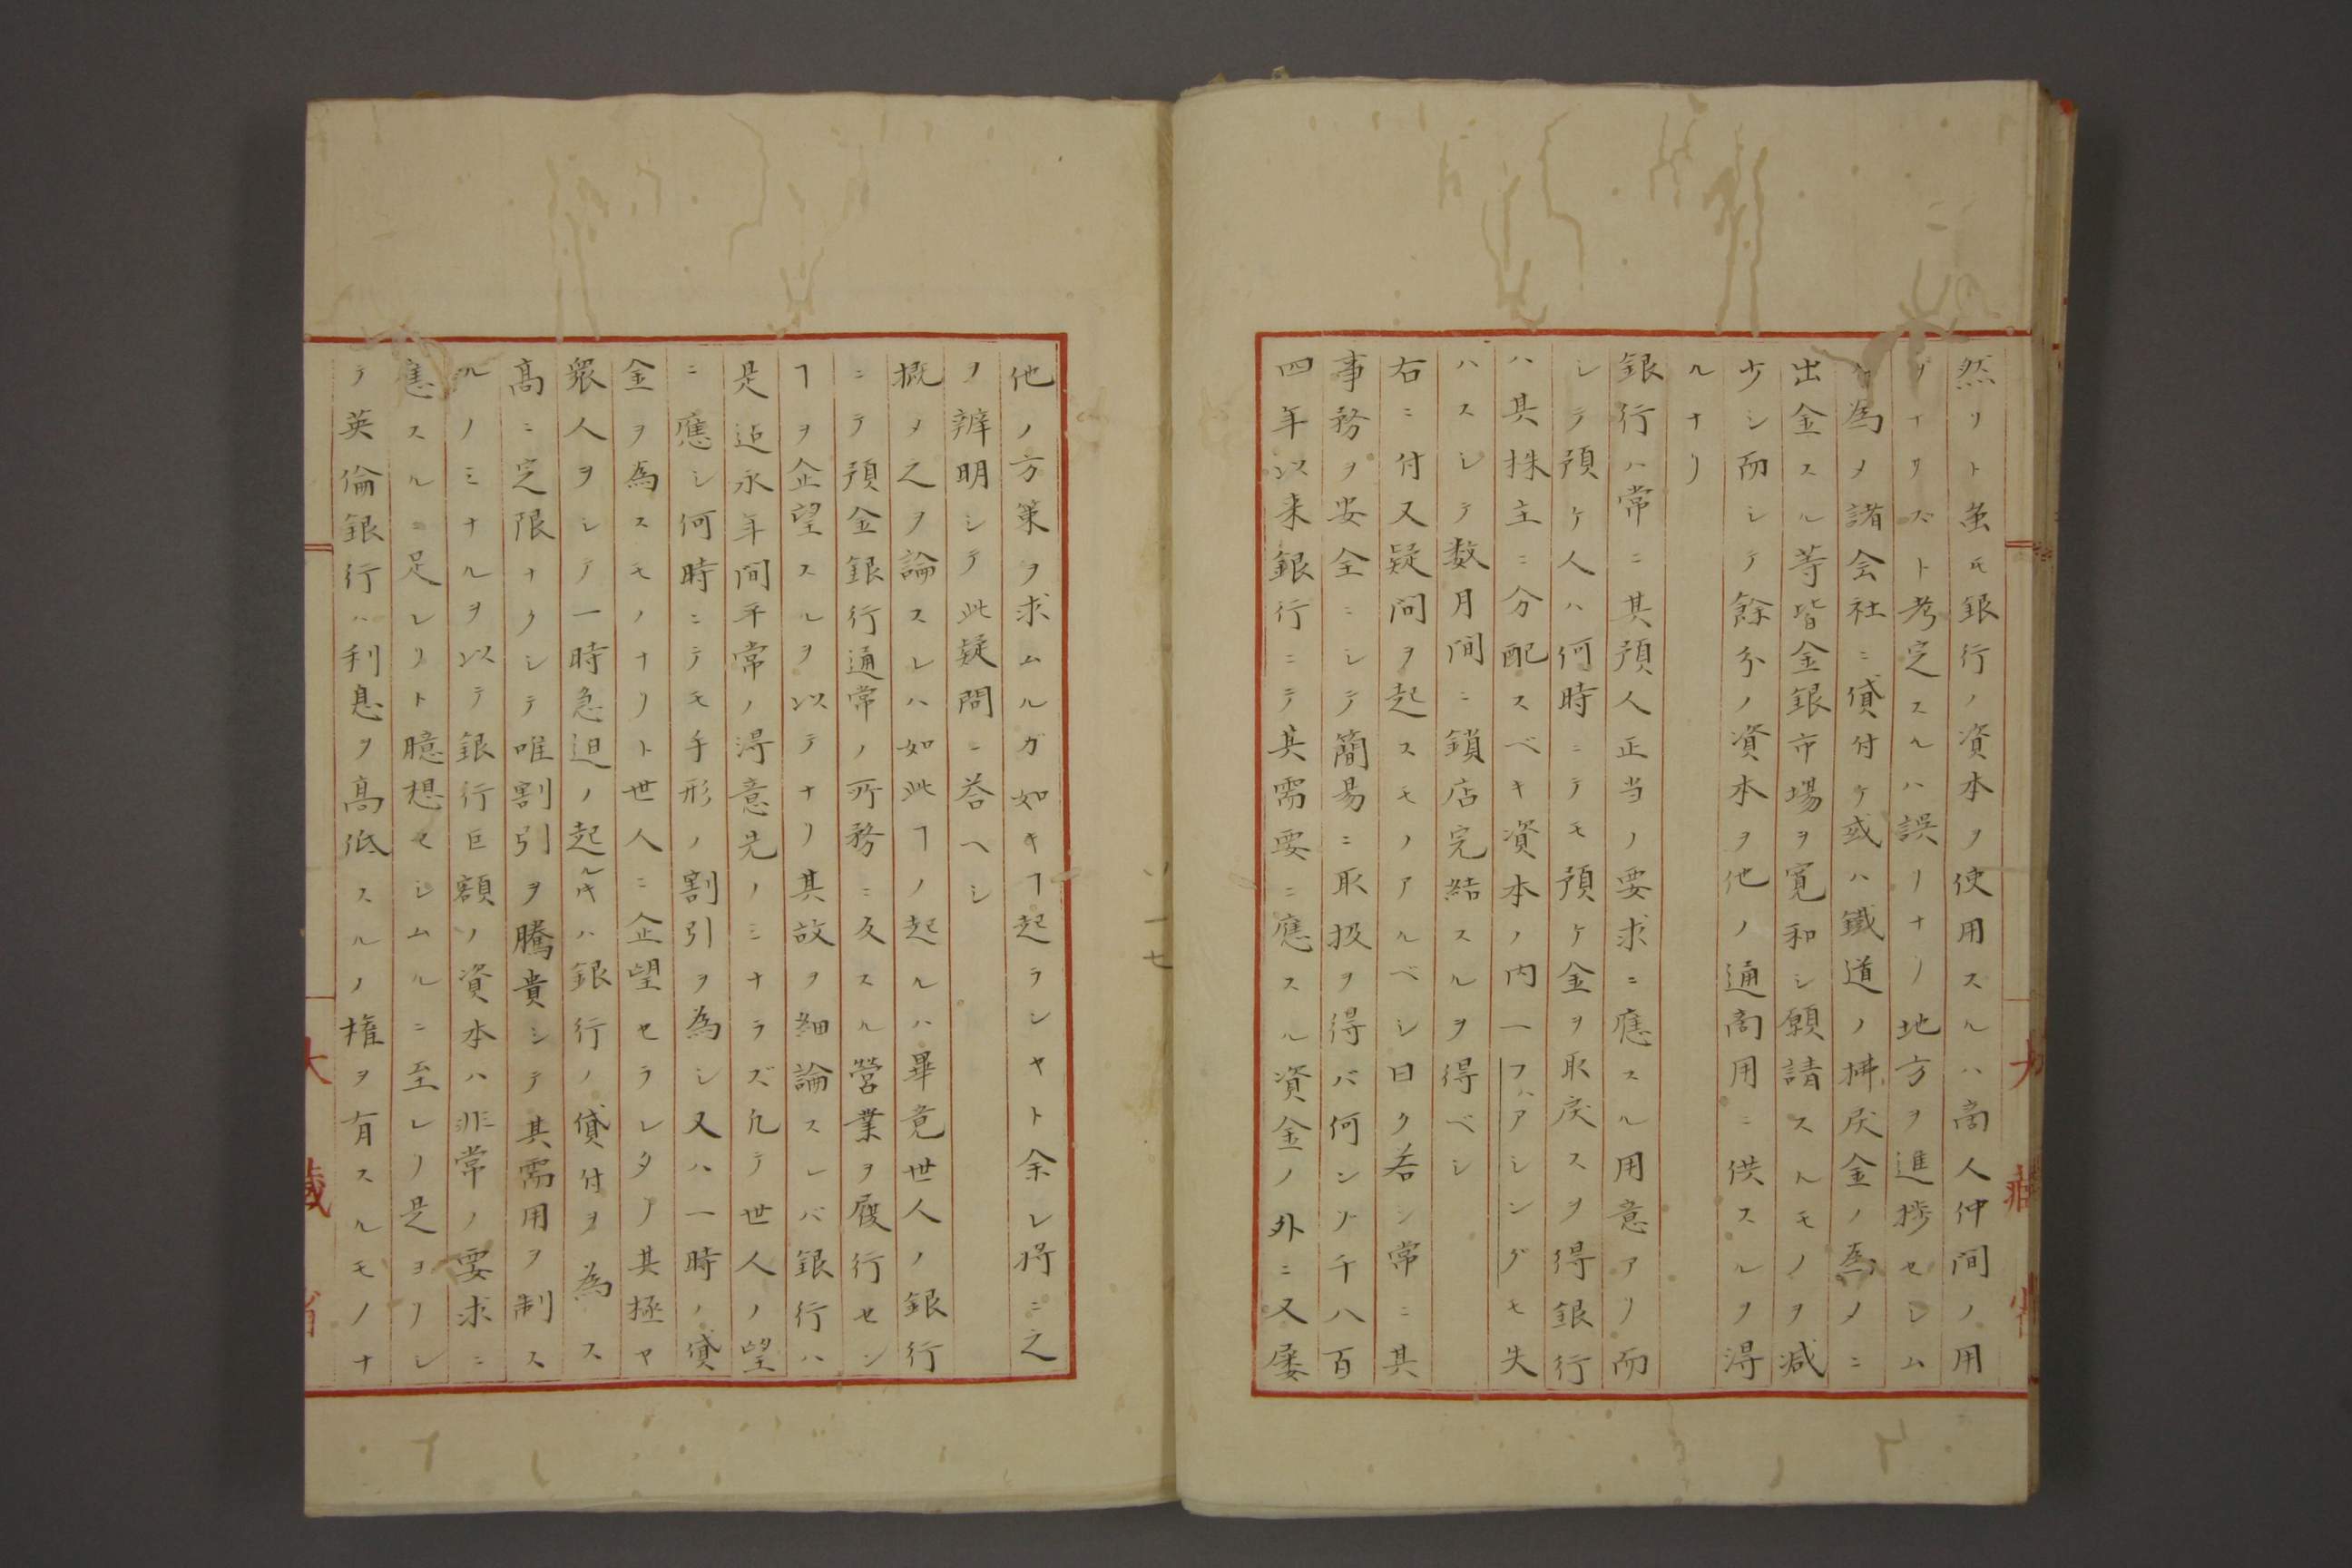 然リト雖モ銀行ノ資本ヲ使用スルハ商人仲間ノ用
ノミナリズト考定スルハ誤リナリ地方ヲ進捗セシム
ル為メ諸会社ニ貸付ケ或ハ鐵道ノ拂戻金ノ為メニ
出金スル等皆金銀市場ヲ寛和シ願請スルモノヲ減
少シ而シテ餘分ノ資本ヲ他ノ通商用ニ供スルヲ得
ルナリ
銀行ハ常ニ其預人正当ノ要求ニ應スル用意アリ而
シテ預ケ人ハ何時ニテモ預ケ金ヲ取戻スヲ得銀行
ハ其株主ニ分配スベキ資本ノ内一フハアシングモ失
ハスシテ数月間ニ鎖店完結スルヲ得ベシ
右ニ付又疑问ヲ起スモノアルベシ曰ク若シ常ニ其
事務ヲ安全ニシテ簡易ニ取扱ヲ得バ何ンゾ千八百
四年以来銀行ニテ其需要ニ應スル資金ノ外ニ又屡
他ノ方策ヲ求ムルガ如キヿ起ラシヤト余レ将ニ之
ノ辨明シテ此疑問ニ答ヘシ
概メ之ヲ論スレハ如此ヿノ起ルハ畢竟世人ノ銀行
ニテ預金銀行通常ノ所務ニ反スル營業ヲ履行セン
ヿヲ企望スルヲ以テナリ其故ヲ細論スレバ銀行ハ
是迄永年間平常ノ得意先ノミナラズ凡テ世人ノ望
ニ應シ何時ニテモ手形ノ割引ヲ為シ又ハ一時ノ貸
金ヲ為スモノナリト世人ニ企望セラレタリ其極ヤ
衆人ヲシテ一時急迫ノ起ル𪜈ハ銀行ノ貸付ヲ為ス
高ニ定限ナクシテ唯割引ヲ騰貴シテ其需用ヲ制ス
ルノミナルヲ以テ銀行巨額ノ資本ハ非常ノ要求ニ
應スルニ足レリト臆想セシムルニ至レリ是ヨリシ
テ英倫銀行ハ利息ヲ高低スルノ権ヲ有スルモノナ
大藏省